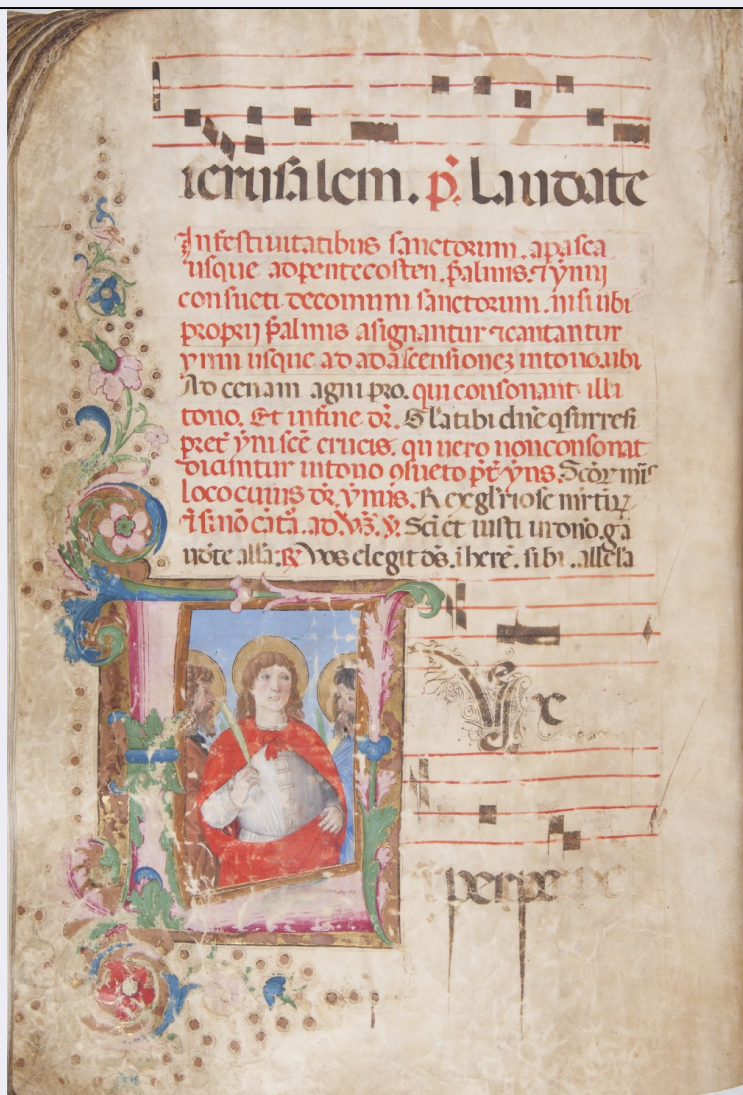 ierusalem. p̃. Laudate
In festiuitatibus sanctorum. a pasca
usque ad pentecosten. p̃almis. ⁊ ỹmni
consueti decomuni sanctorum. nisi ubi
proprij p̃almis asignantur ⁊cantantur
ymni usque ad adascensionez intono. ubi
Ad cenam agni pro. qui consonant illi
tono. Et infine dr̃. Gl̃a tibi dñe q surrexi
ỹni scẽ crucis. qui uero non consonat
dicuntur intono Sctõꝝ
loco cuius dr̃. ỹmus. Rex gl̃riose mr̃tiꝝ
ad. Sc̃i et iusti in dño. ga
udete all̃a. ℟ Vos elegit d̃s. i herẽ. sibi. all̃ela
Lux
perpe